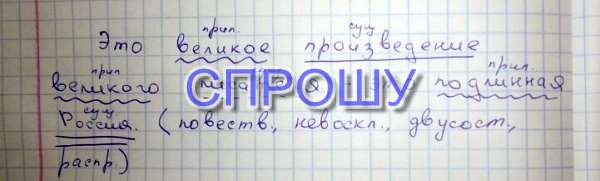 прил. сущ
Это великое произведение
прил прил.
великого подлинная
СПРОШУ
сущ
Россия. (повеств., невоскл., двусост.,
распр.)